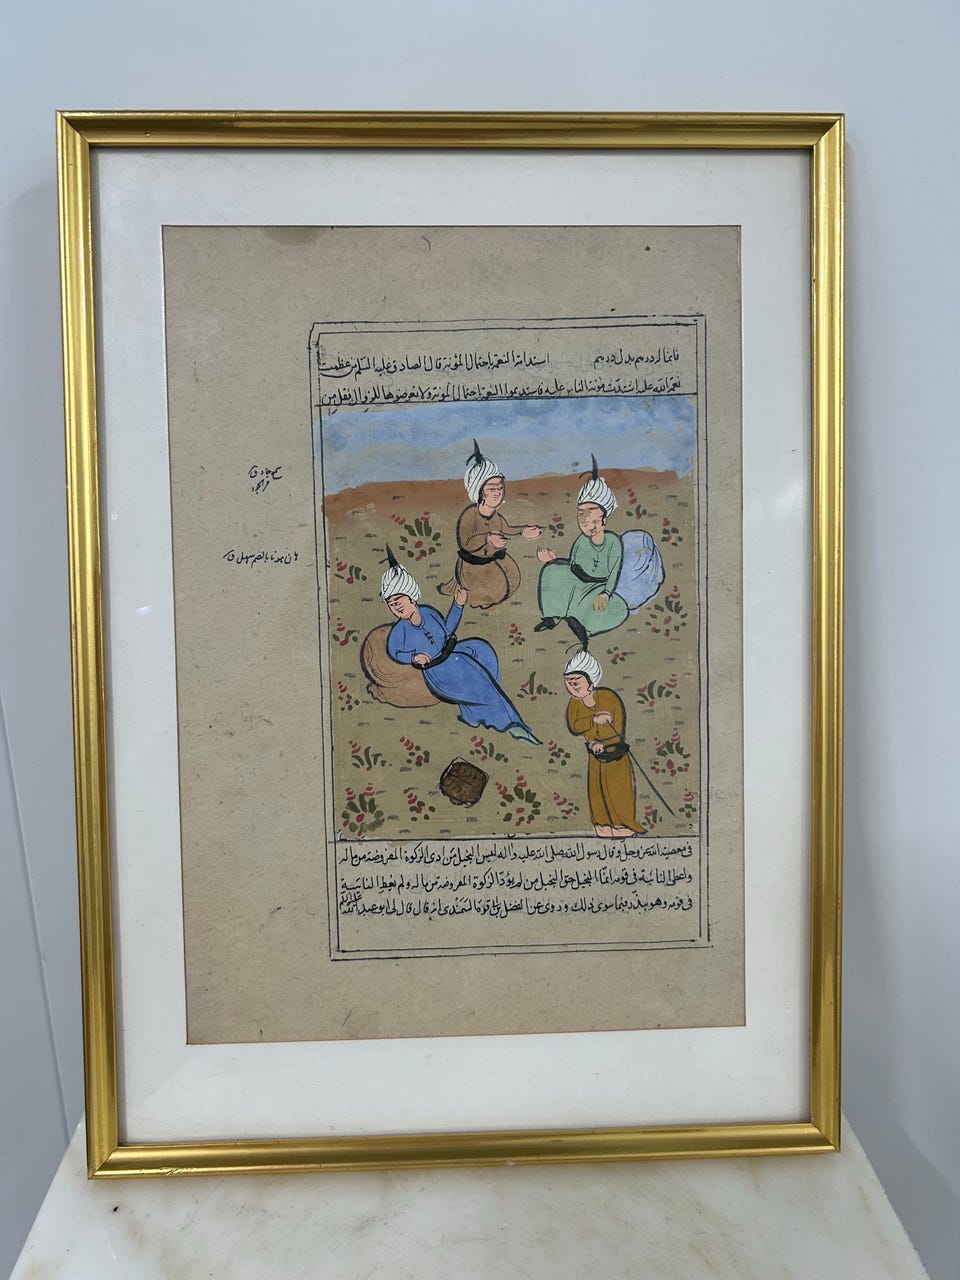 فانما له درهم بدل درهم استدامة النعمة باحتمال المؤنة قال الصادق عليه السلم من عظمت
نعمة الله عليه اشتدت مؤنة الناس عليه فاستديموا النعمة باحتمال المؤنة ولا تعرضوها للزوال فقل من
في معصية الله عز وجل وقال رسول الله صلى الله عليه واله ليس البخيل من ادى الزكوة المفروضة من ماله
واعطى النائبة في قومه انما البخيل حق البخيل من لم يؤد الزكوة المفروضة من ماله ولم يعط النائبة
في قومه وهو يبذر فيما سوى ذلك وروى عن الفضل بن ابي قرة السمندي انه قال قال لي ابو عبد الله عليه السلم